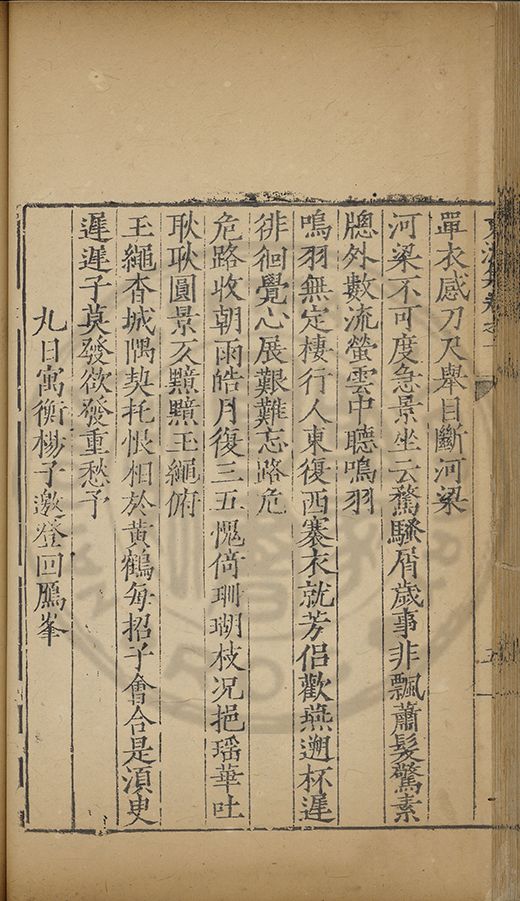 單衣感刀尺舉目斷河梁
河梁不可度急景坐云驚騷屑歲事非飄蕭髮驚素
牕外數流螢雲中聽鳴羽
鳴羽無定棲行人東復西褰衣就芳侶歡燕遡杯遲
徘徊覺心展艱難忘路危
危路收朝雨皓月復三五愧倚珊瑚枝况挹瑶華吐
耿耿圓景亥黯黯玉繩俯
玉繩杳城隅契托恨相於黄鶴每招子會合是湏臾
遲遲子莫發欲發重愁予
九日寓衡楊子邀登回鴈峯